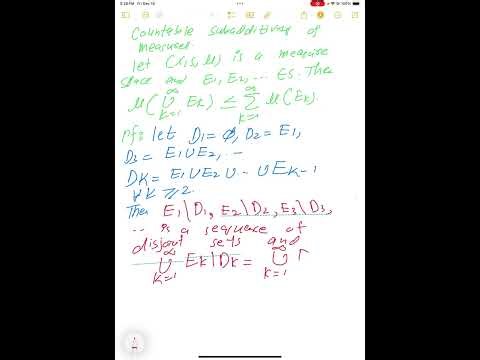 Countable subadditivity of
measures.
let (X, S, μ) is a measure
space and E1, E2, ... ES. Then
μ(∞∪k=1 Ek) ≤ ∞Σk=1 μ(Ek).
Pf: let D1 = ϕ, D2 = E1,
D3 = E1 ∪ E2, ...
DK = E1 ∪ E2 ∪ -- ∪ EK-1
∀ k ≥ 2.
Then E1\D1, E2\D2, E3\D3,
... is a sequence of
disjout sets and
∞∪k=1 EK\DK = ∞∪k=1